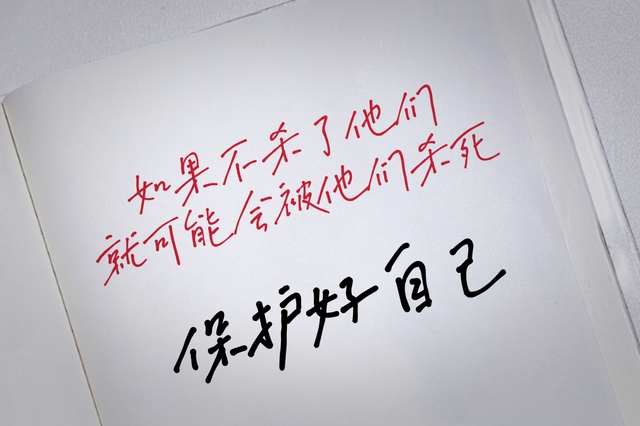 如果不杀了他们
就可能会被他们杀死
保护好自己